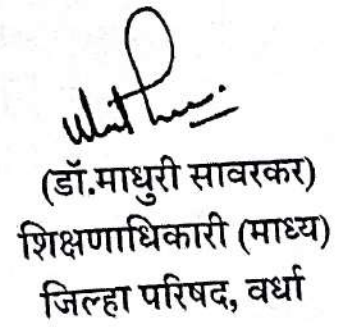 (डॉ.माधुरी सावरकर)
शिक्षणाधिकारी (माध्य)
जिल्हा परिषद, वर्धा